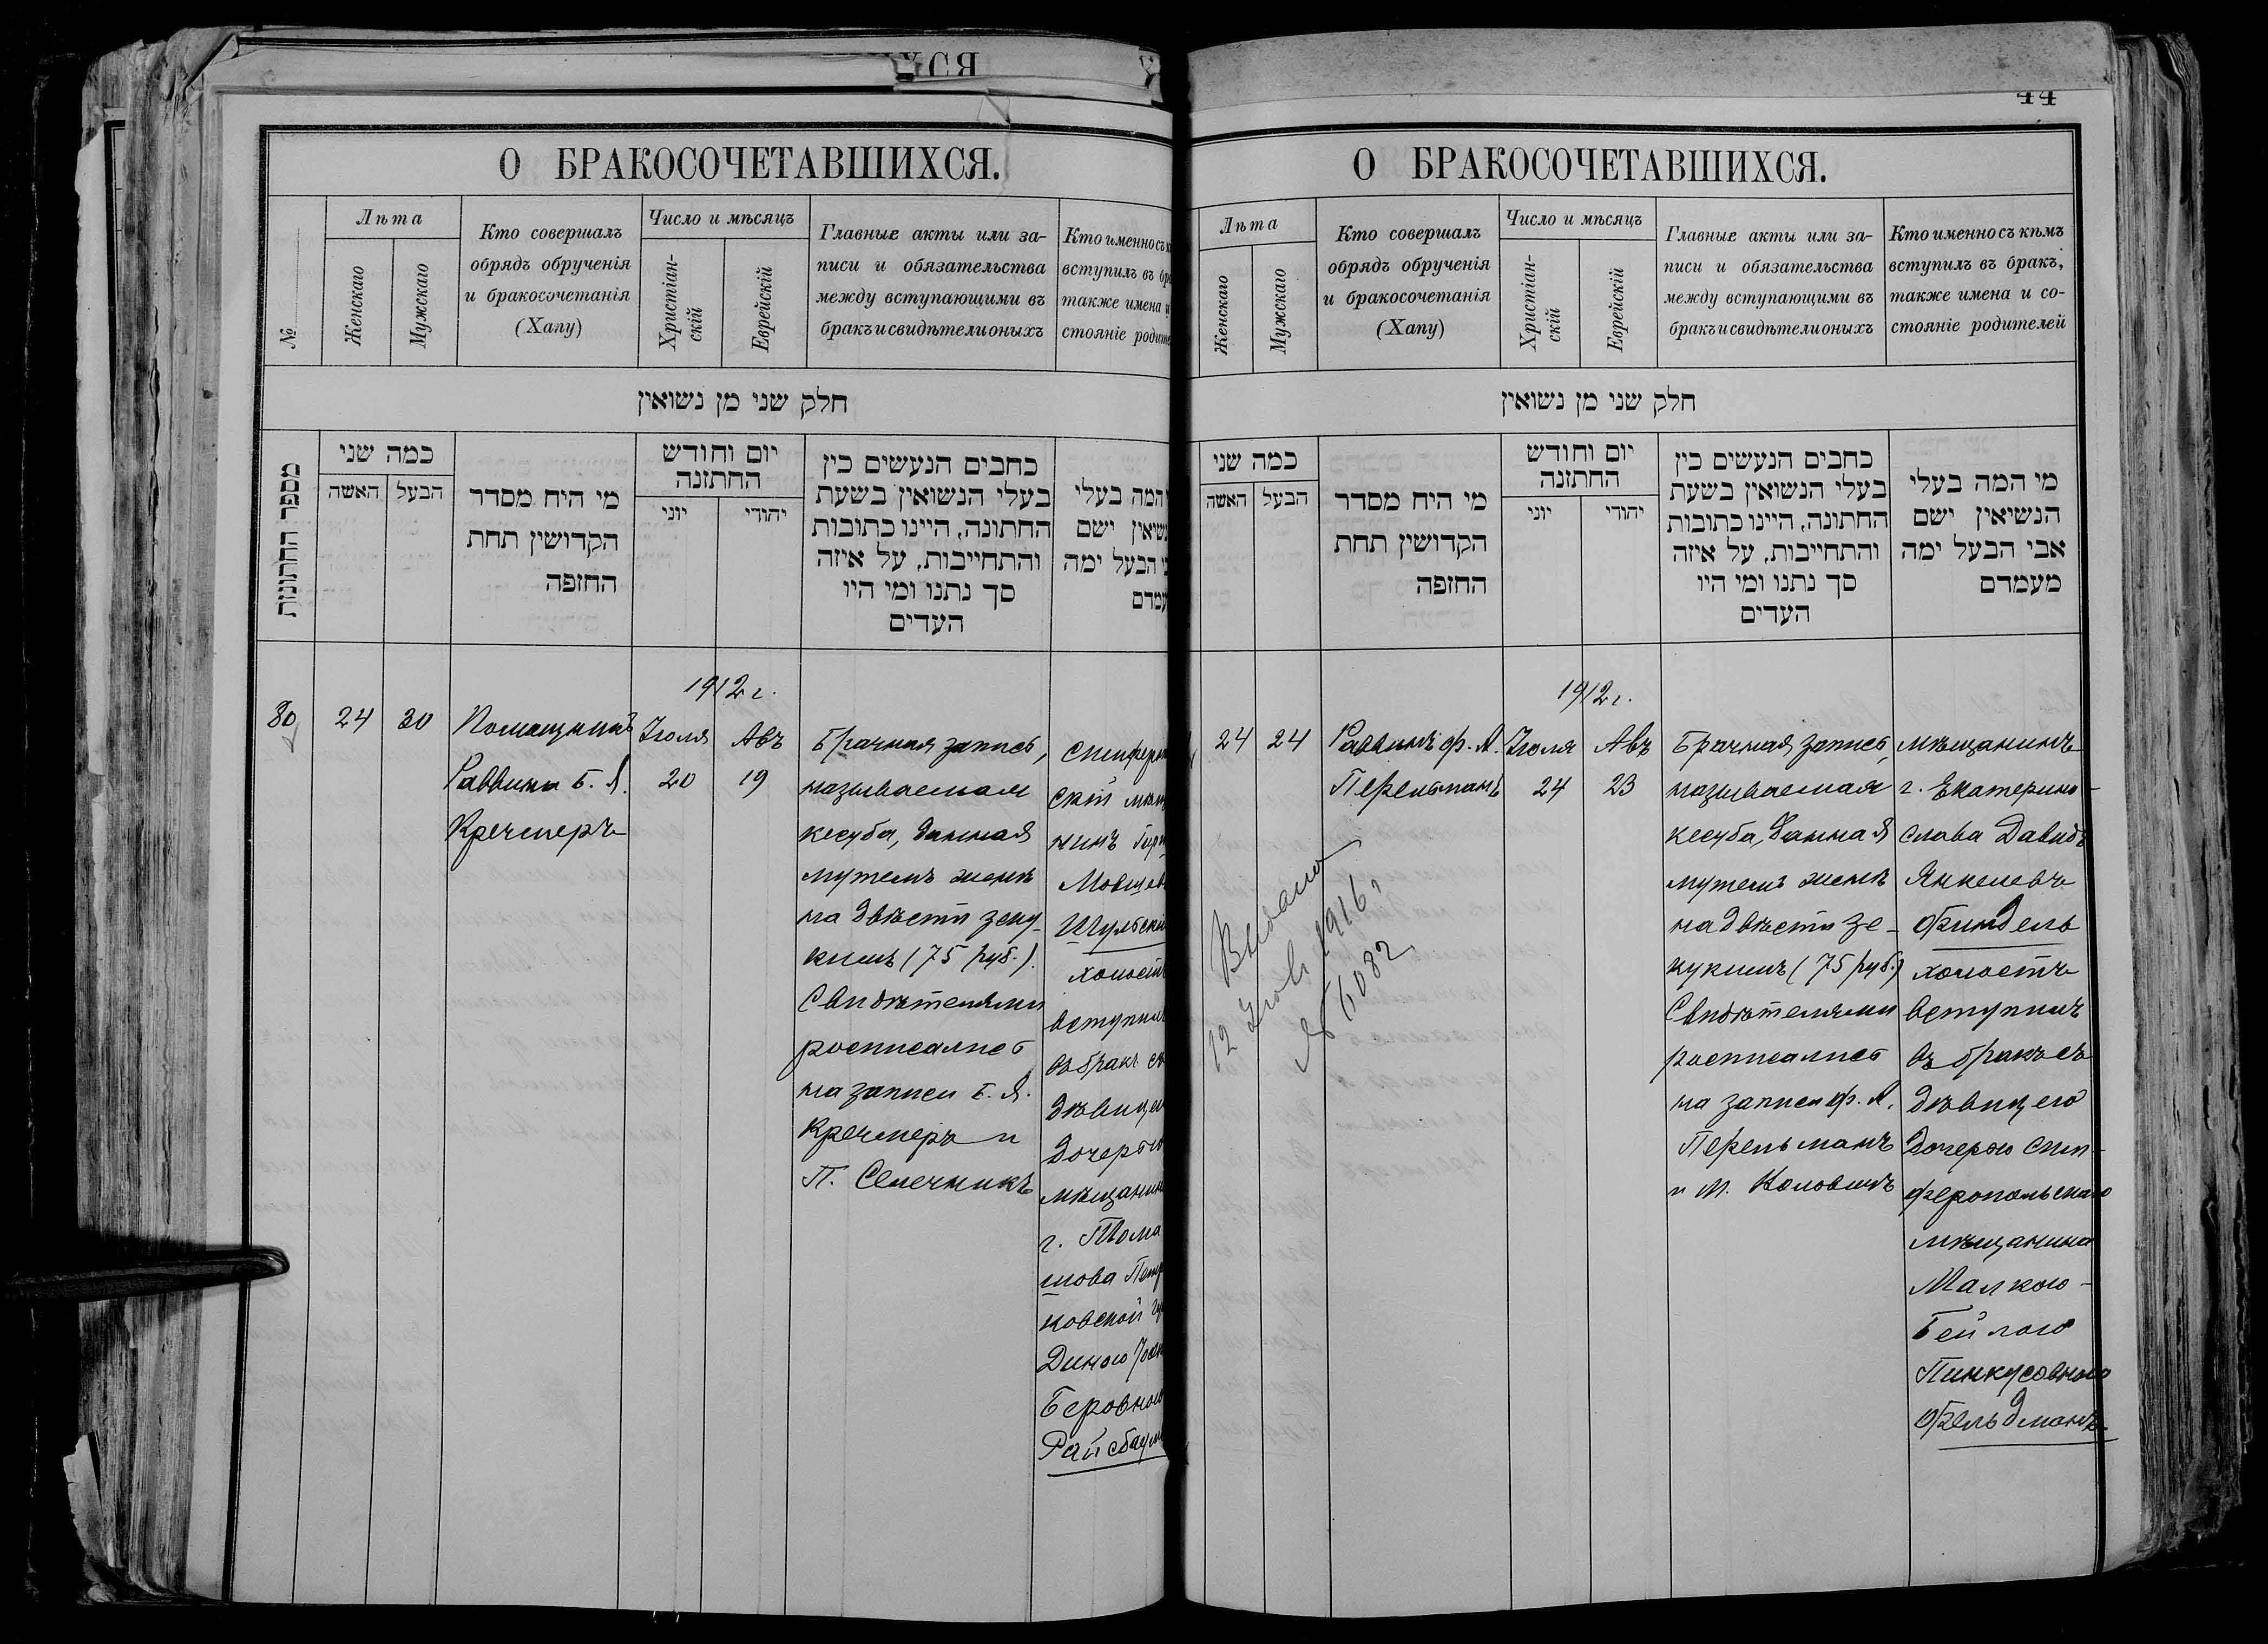 ХСЯ
О БРАКОСОЧЕТАВШИХСЯ.
№
Лѣта
Женскаго
Мужскаго
Кто совершалъ
обрядъ обрученія
и бракосочетанія
(Хапу)
Число и мѣсяцъ
Христіан-
скій
Еврейскій
Главные акты или за-
писи и обязательства
между вступающими въ
бракъ и свидѣтели оныхъ
Кто именно съ
вступилъ въ
также имена
стояніе
חלק שני מן נשואין
מספר החתונות
כמה שני
האשה
הבעל
מי היח מסדר
הקדושין תחת
החזפה
יום וחודש
החתזנה
יוני
יהודי
כחבים הנעשים כין
בעלי הנשואין בשעת
החתונה, היינו כתובות
והתחייבות, על איזה
סך נתנו ומי היו
העדים
המה בעלי
ישם
הבעל ימה
80
24
30
Помощникъ
Раввина Б. Я.
Кречмеръ
1912 г.
Іюля
20
Авъ
19
Брачная запись,
называемая
кесуба, данная
мужемъ женѣ
на двѣсти зеку-
кимъ (75 руб.).
Свидѣтелями
росписались
на записи Б. Я.
Кречмеръ и
П. Селечникъ
скій
Шульскій
въ бракъ
г. Тома
шова
ковской
Диною
44
О БРАКОСОЧЕТАВШИХСЯ.
Лѣта
Женскаго
Мужскаго
Кто совершалъ
обрядъ обрученія
и бракосочетанія
(Хапу)
Число и мѣсяцъ
Христіан-
скій
Еврейскій
Главные акты или за-
писи и обязательства
между вступающими въ
бракъ и свидѣтели оныхъ
Кто именно съ кѣмъ
вступилъ въ бракъ,
также имена и со-
стояніе родителей
חלק שני מן נשואין
כמה שני
האשה
הבעל
מי היח מסדר
הקדושין תחת
החזפה
יום וחודש
החתזנה
יוני
יהודי
כחבים הנעשים כין
בעלי הנשואין בשעת
החתונה, היינו כתובות
והתחייבות, על איזה
סך נתנו ומי היו
העדים
מי המה בעלי
הנשיאין ישם
אבי הבעל ימה
מעמדם
24
24
Раввинъ Ф. А.
Перельманъ
1912 г.
Іюля
24
Авъ
23
Брачная запись,
называемая
кесуба, данная
мужемъ женѣ
на двѣсти зе-
кукимъ (75 руб.)
Свидѣтелями
росписались
на записи Ф. А.
Перельманъ
и М. Коловичъ
мѣщанинъ
г. Екатерино-
слава Давидъ
Янкелевъ
Финдель
холостъ
вступилъ
въ бракъ съ
дѣвицею
дочерью сим-
феропольскаго
мѣщанина
Малкою-
Бейлою
Пинкусовною
Фельдманъ
Выдано
12 1916 г.
№ 6082